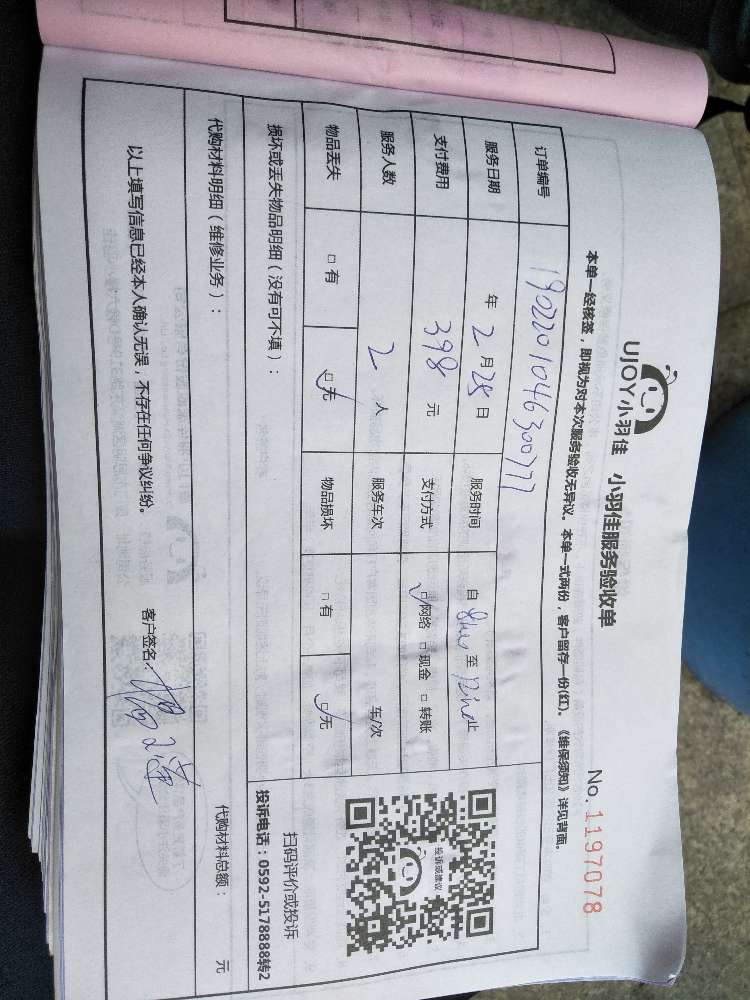 UJOY小羽佳 小羽佳服务验收单 No. 1197078
本单一经核签，即视为对本次服务验收无异议。本单一式两份，客户留存一份(红)。《维保须知》详见背面。
订单编号 190220104630077
服务日期 年 2 月 28 日 服务时间 自 至 止
支付费用 398 元 支付方式 □网络 □现金 □转账
服务人数 2 人 服务车次 车/次
物品丢失 □有 □无 物品损坏 □有 □无
投诉或建议
扫码评价或投诉
投诉电话：0592-5178888转2
损坏或丢失物品明细（没有可不填）：
代购材料明细（维修业务）： 代购材料总额： 元
以上填写信息已经本人确认无误，不存在任何争议纠纷。 客户签名：